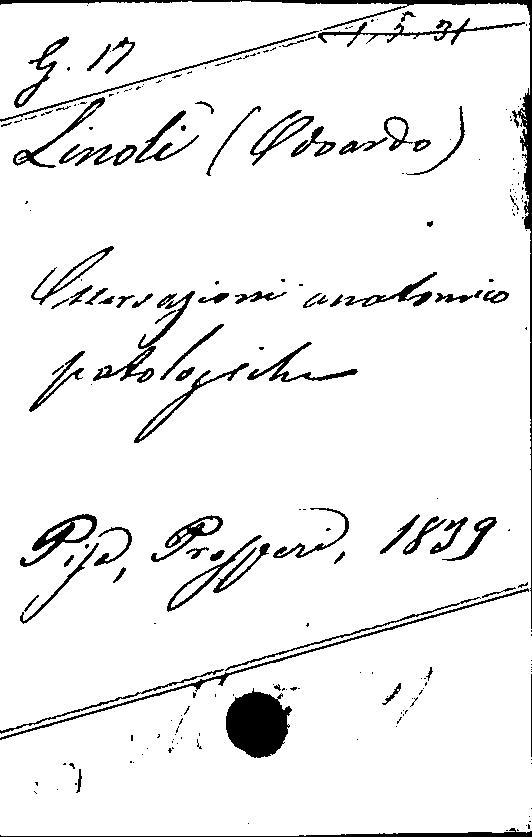 G. 17
1. 5. 31
Linoli (Odoardo)
Osservazioni anatomico
patologiche
Pisa, Prosperi, 1839